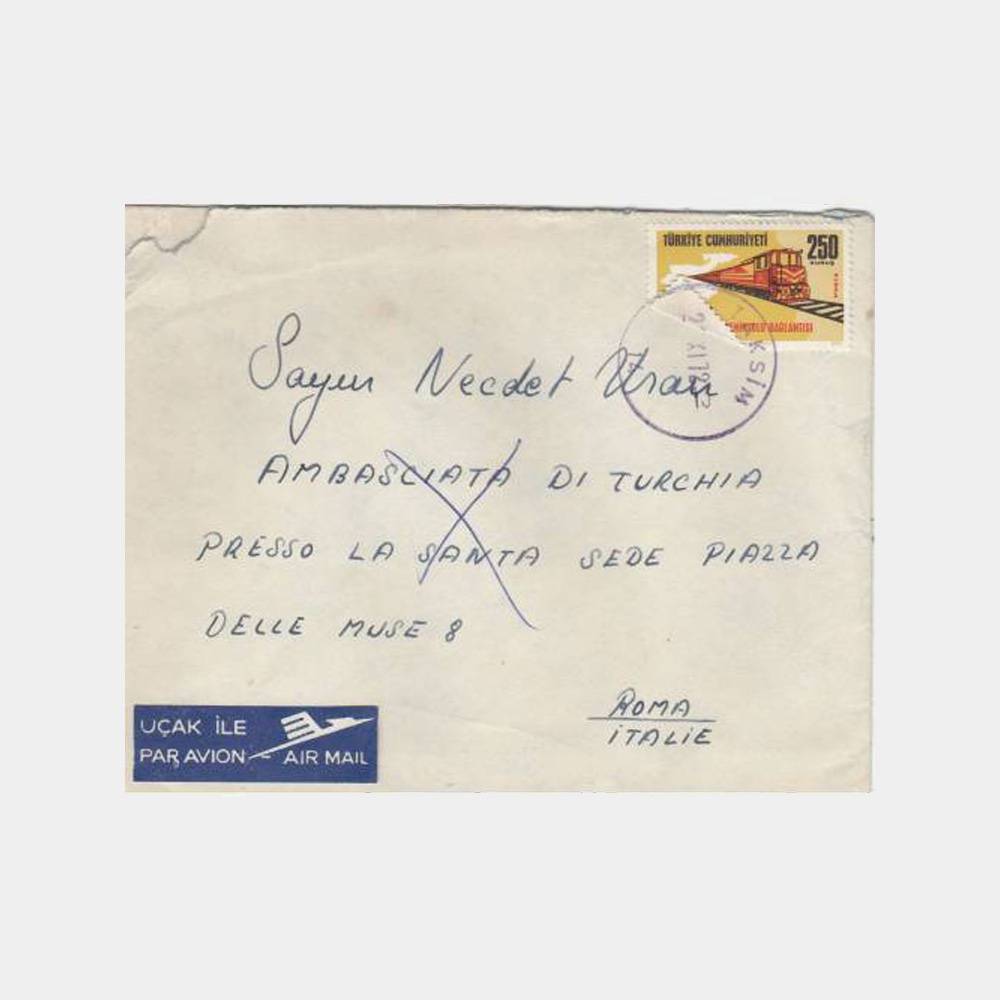 TÜRKİYE CUMHURİYETİ
250
KURUŞ
POSTA
DEMİRYOLU BAĞLANTISI
TAKSİM
Sayın Necdet Uran
AMBASCIATA DI TURCHIA
PRESSO LA SANTA SEDE PIAZZA
DELLE MUSE 8
ROMA
İTALIE
UÇAK İLE
PAR AVION - AIR MAIL